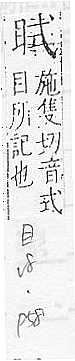 䀥
施隻切音式
目所記也
目
v8.
p58